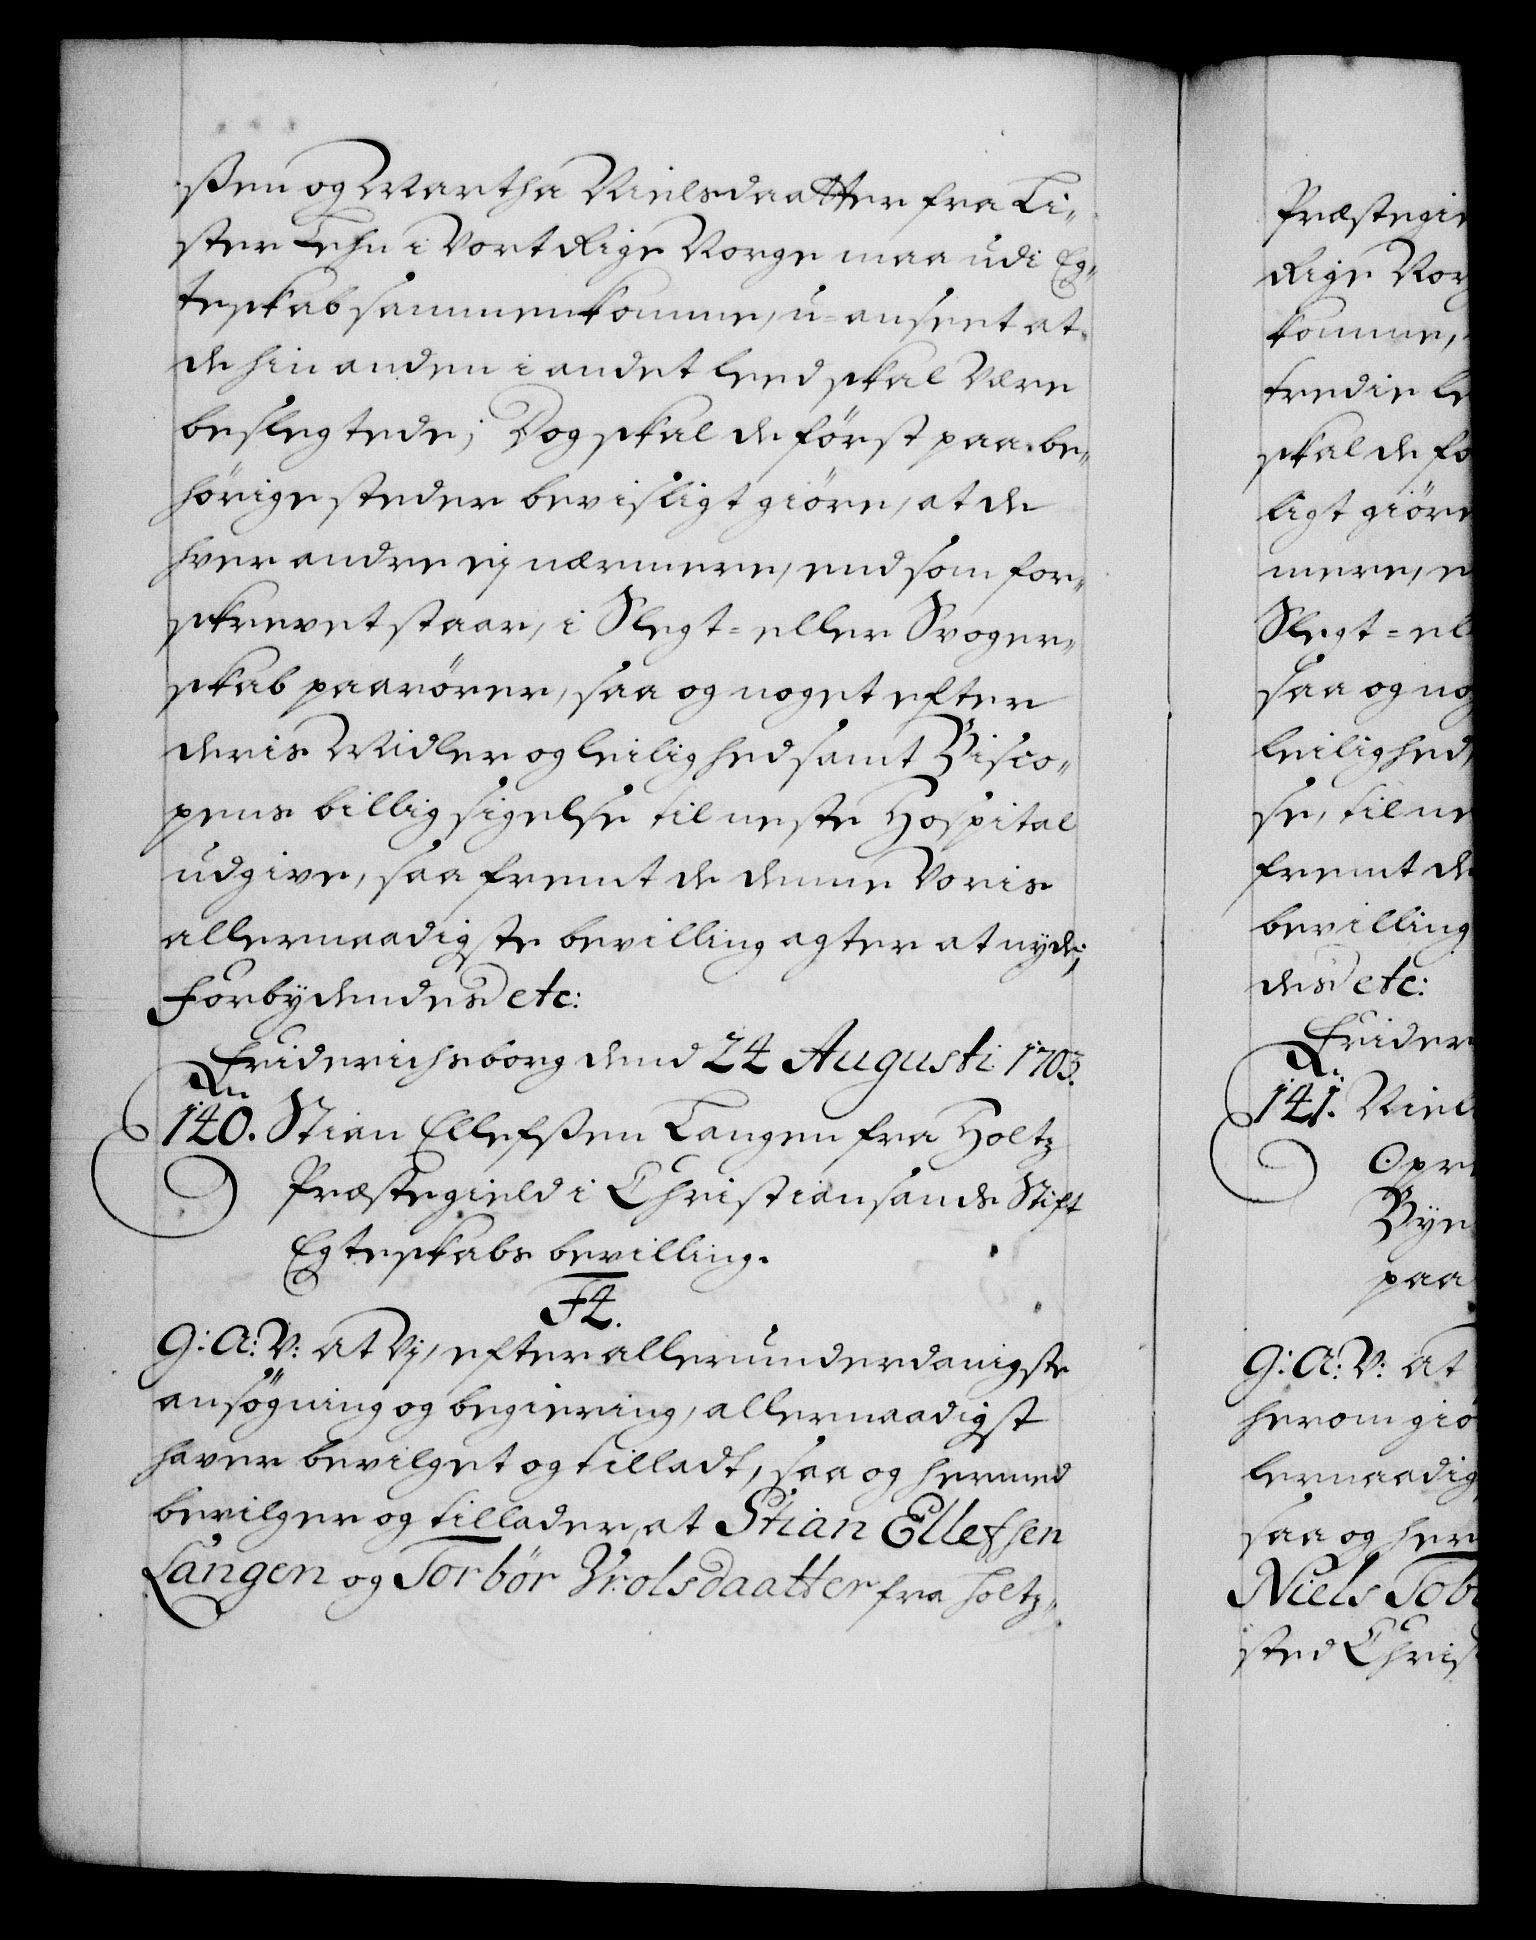 ßen og Martha Nielsdaatter fra Li„
ster Lehn i Vort Rige Norge maa udi Eg„
teskab sammenkomme, u-anseet at
de hin anden i andet leed skal være
beslegtede; Dog skal de först paa be„
hörige steder bevisligt giöre, at de
hver andre eij nærmere, end som for„
skrevet staar, i Slegt- eller Svoger„
skab paarörer, saa og noget efter
deris Midler og leilighed samt Bisco„
pens billig sigelse til neste Hospital
udgive, saa fremt de denne Voris
allernaadigste bevilling agter at nyde;
Forbydendes etc:
Friderichsborg dend 24 Augusti 1703.
140. Stian Ellefßen Langen fra Holtz
Præstegield i Christiansands Stift
Egteskabs bevilling.
F4.
G: A: V: At Vj, efter allerunderdanigste
ansögning og begiering, allernaadigst
haver bevilget og tilladt, saa og hermed
bevilger og tillader, at Stian Ellefsen
Langen og Torbör Vrolsdaatter fra Holtz„
Præstegie
Rige Nor
komme,
tredie le
skal de fö
ligt giöre
mere, e
Slegt-el
saa og no
leilighed,
se, til ne
fremt de
bevilling
des etc:
Frider
141. Niel
Opr
Bye
paa
G: A: V: At
herom giö
lernaadig
saa og her
Niels Tobi
sted Chris